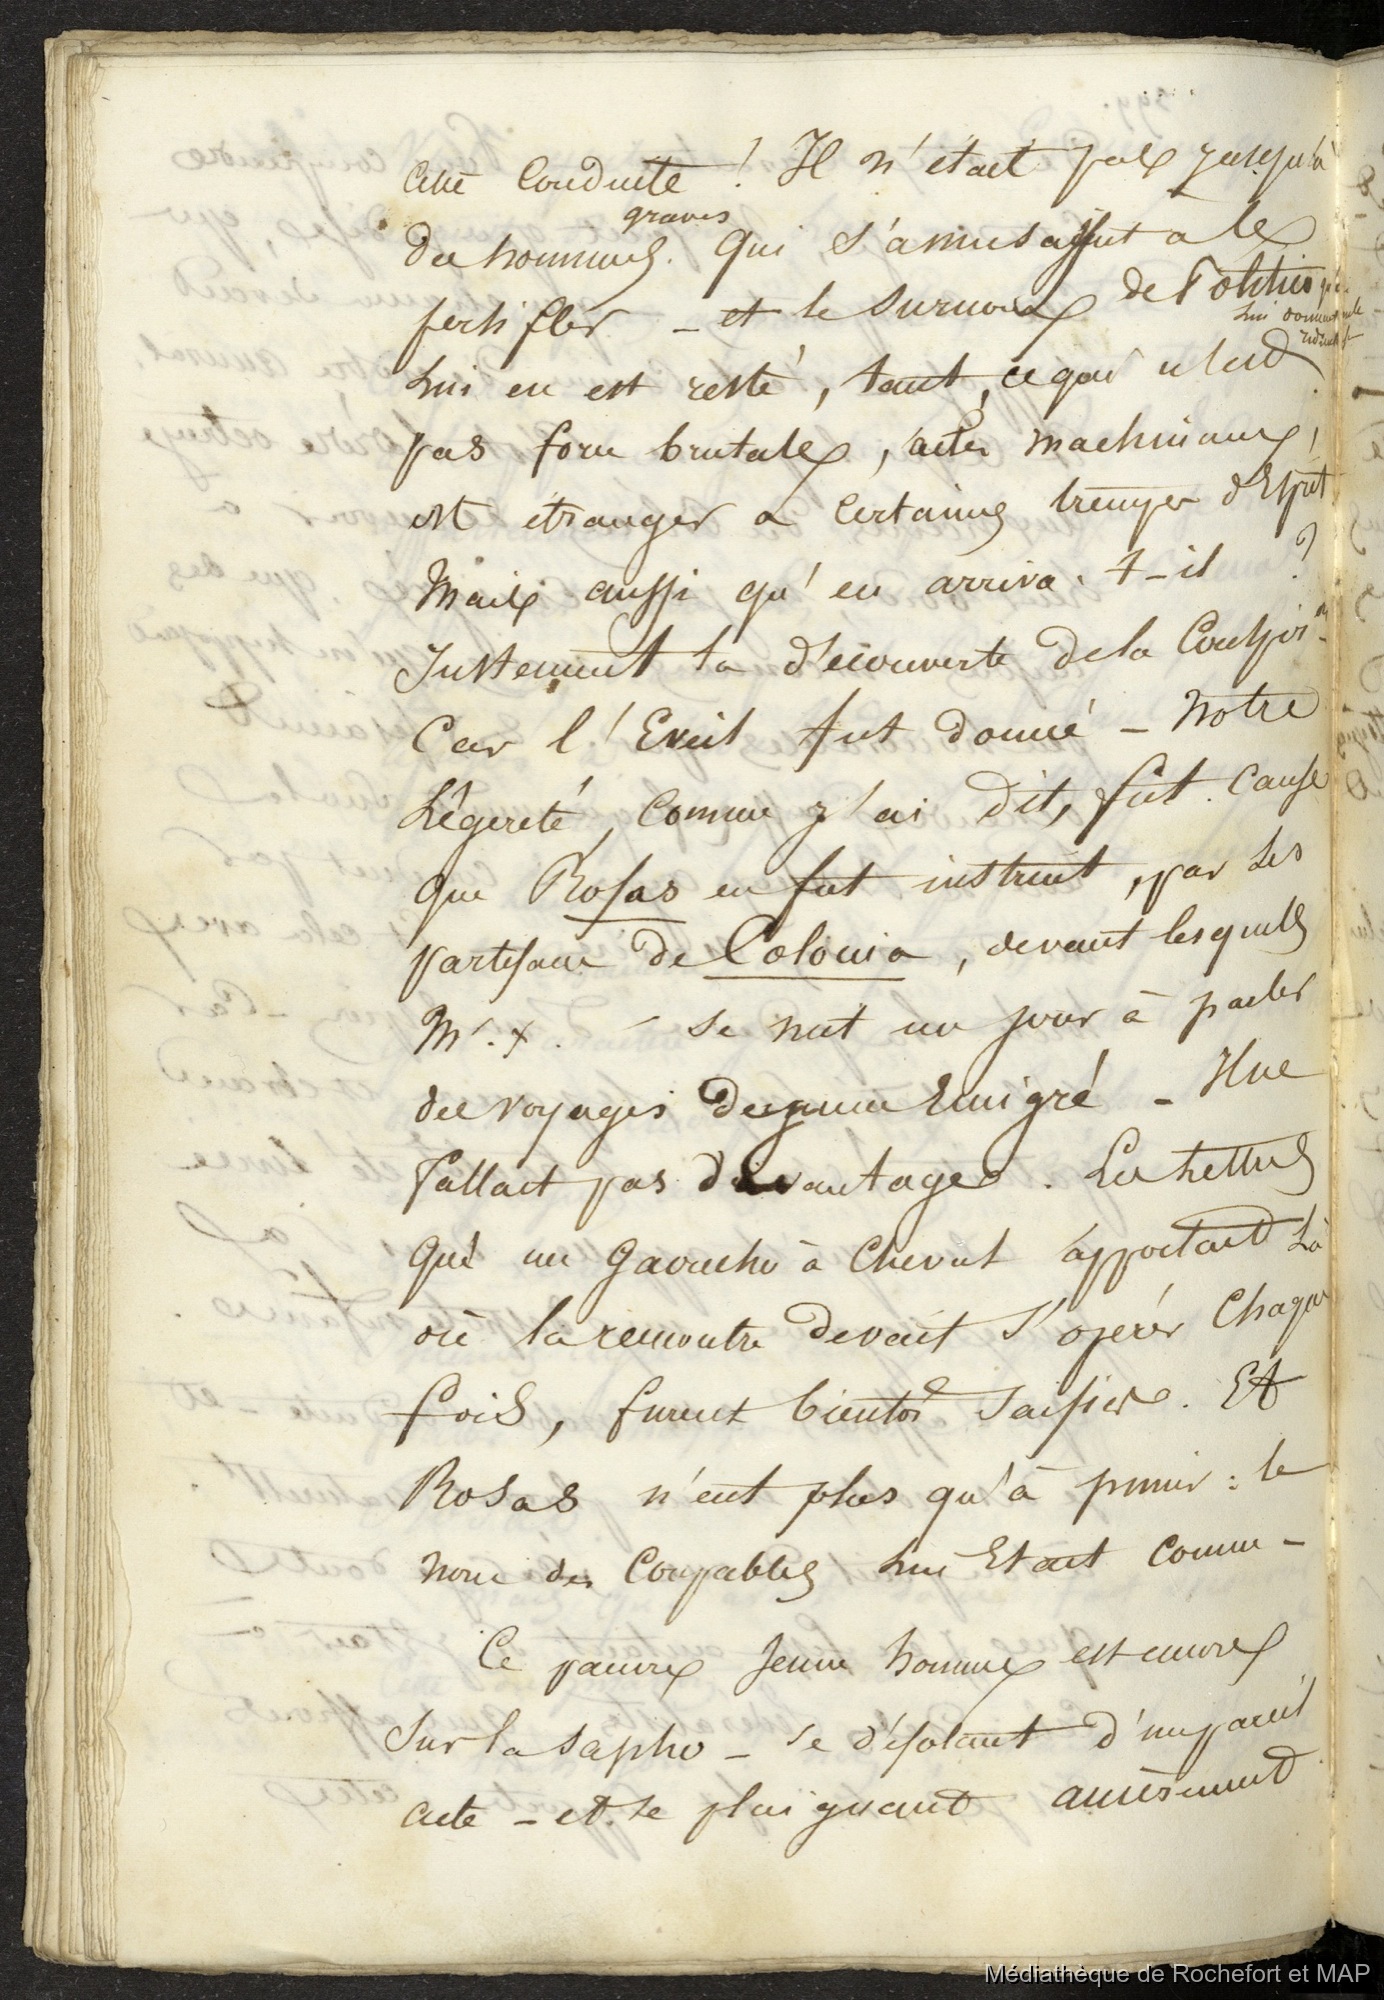 cette Conduite ! Il n'était pas jusqu'à
des hommes graves qui s'amusassent a le
persifler - et le surnom de
lui en est resté, tant ce qui n'est
pas force brutale, actes machinaux,
est étranger a Certaines trempes d'Esprit
Mais aussi qu'en arriva-t-il ?
Justement la découverte de la Conspir.on
Car l'Eveil fut donné - Notre
Légereté, comme j'ai dit, fut cause
que Rosas en fut instruit, par les
partisans de Colonia, devant lesquels
Mr. X. se mit un jour à parler
des voyages du jeune Emigré - Il ne
fallait pas davantage. Les Lettres
qu'un Gaoucho à Cheval apportait là
où la rencontre devait s'opérer Chaque
fois, furent bientôt saisies. Et
Rosas n'eut plus qu'à punir : le
nom des Coupables lui Etait connu -
Ce pauvre jeune homme est encore
Sur la Sapho - se désolant d'un pareil
acte - et se plaignant amèrement
Médiathèque de Rochefort et MAP